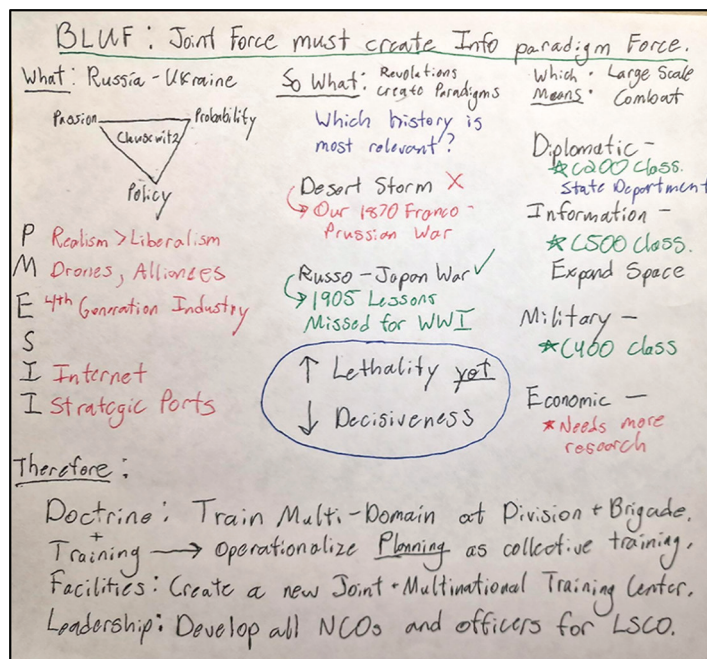 BLUF: Joint Force must create Info paradigm Force.
What: Russia-Ukraine
Passion
Probability
Clausewitz
Policy
P Realism > Liberalism
M Drones, Alliances
E 4th Generation Industry
S
I Internet
I Strategic Ports
So What: Revolutions
Create Paradigms
Which history is
most relevant?
Desert Storm X
Our 1870 Franco-
Prussian War
Russo-Japan War ✓
1905 Lessons
Missed for WWI
↑ Lethality yet
↓ Decisiveness
Which Large Scale
Means: Combat
Diplomatic -
C200 Class.
State Department
Information -
C500 Class.
Expand Space
Military -
C400 Class
Economic -
* Needs more
research
Therefore:
Doctrine: Train Multi-Domain at Division + Brigade.
+
Training → Operationalize Planning as collective training.
Facilities: Create a new Joint + Multinational Training Center.
Leadership: Develop all NCOs and officers for LSCO.